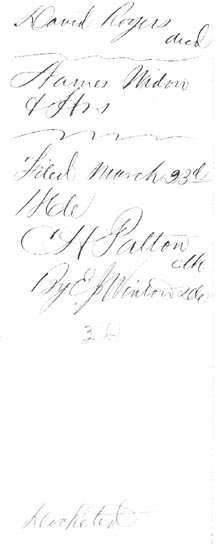 David Rogers
decd
Names Widow
& Hrs
Filed March 23d
C H Patton
clk
By E J Winton
Docketed